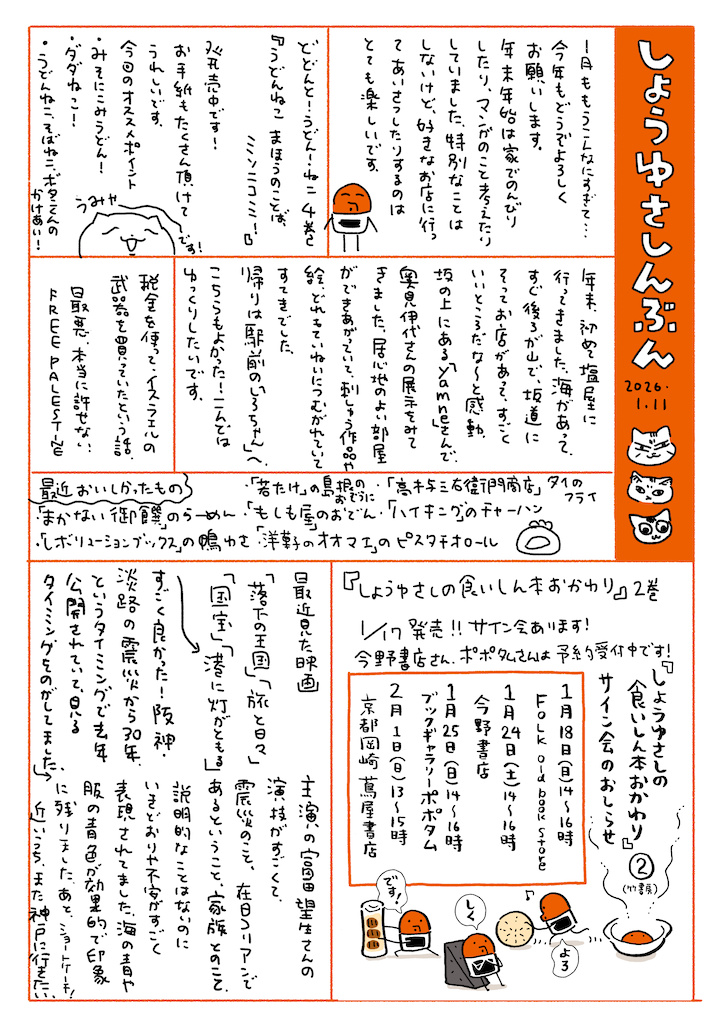 しょうゆさしんぶん
2026.
1.11
1月ももうこんなにすぎて…
今年もどうぞよろしく
お願いします。
年末年始は家でのんびり
したり、マンガのこと考えたり
していました。特別なことは
しないけど、好きなお店に行っ
てあいさつしたりするのは
とても楽しいです。
どどんと!うどん!ねこ 4巻こ
『うどんねこ まほうのことば、
ミソニコミ!』
発売中です!
お手紙もたくさん頂けて
うれしいです。
今回のオススメポイント
・みそにこみうどん!
・ダダねこ!
・うどんねこ、そばねこ、ボタンくんの
かけあい!
うみゃ
です!
年末、初めて塩屋に
行ってきました。海があって、
すぐ後ろが山で、坂道に
そってお店があって、すごく
いいところだな〜と感動。
坂の上にある「yamne」さんで、
奥見伊代さんの展示をみて
きました。居心地のよい部屋
ができあがっていて、刺しゅう作品や
絵、どれもていねいにつむがれていて
すてきでした。
帰りは駅前の「じろちゃん」へ。
こちらもよかった!二人では
ゆっくりしたいです。
税金を使って、イスラエルの
武器を買っていたという話。
最悪。本当に許せない。
FREE PALESTINE
最近おいしかったもの
・「若たけ」の島根のおでうに
・「高木与三右衛門商店」タイのフライ
・「まかない御饌」のらーめん
・「もしも屋」のおでん
・「ハイキング」のチャーハン
・「レボリューションブックス」の鴨ゆさ
「洋菓子のオオマエ」のピスタチオロール
『しょうゆさしの食いしん本おかわり』2巻
1/17 発売!! サイン会あります!
今野書店さん、ポポタムさんは予約受付中です!
『しょうゆさしの
食いしん本おかわり』②
(竹書房)
サイン会のおしらせ
1月18日(日)14〜16時
Folk old book store
1月24日(土)14〜16時
今野書店
1月25日(日)14〜16時
ブックギャラリーポポタム
2月1日(日)13〜15時
京都岡崎 蔦屋書店
です!
しく
よろ
最近見た映画
「落下の王国」「旅と日々」
「国宝」「港に灯がともる」
すごく良かった!阪神・
淡路の震災から30年、
というタイミングで去年
公開されていて、見る
タイミングをのがしてました。
主演の富田望生さんの
演技がすごくて、
震災のこと、在日コリアンで
あるということ、家族とのこと、
説明的なことはないのに
いきどおりや不安がすごく
表現されてました。海の青や
服の青色が効果的で印象
に残りました。あと、ショートケーキ!
近いうち、また神戸に行きたい。